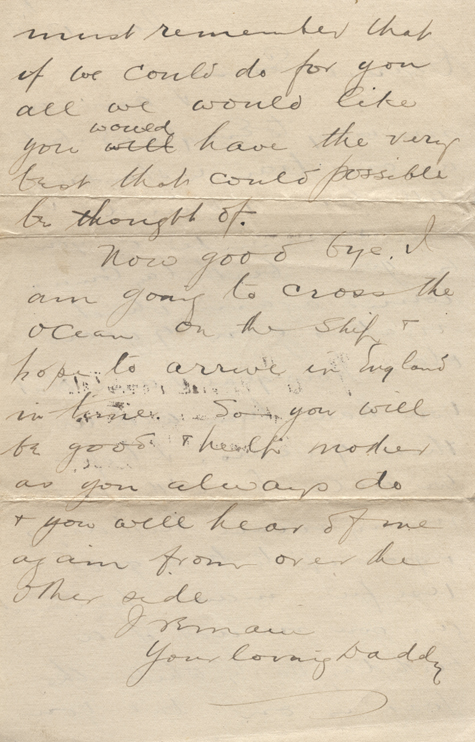 must remember that
if we could do for you
all we would like
would
you will have the very
best that could possible
be thought of.
Now good bye. I
am going to cross the
ocean on the ship &
hope to arrive in England
in time. So you will
be good & help mother
as you always do
& you will hear of me
again from over the
other side
I remain
Your loving Daddy